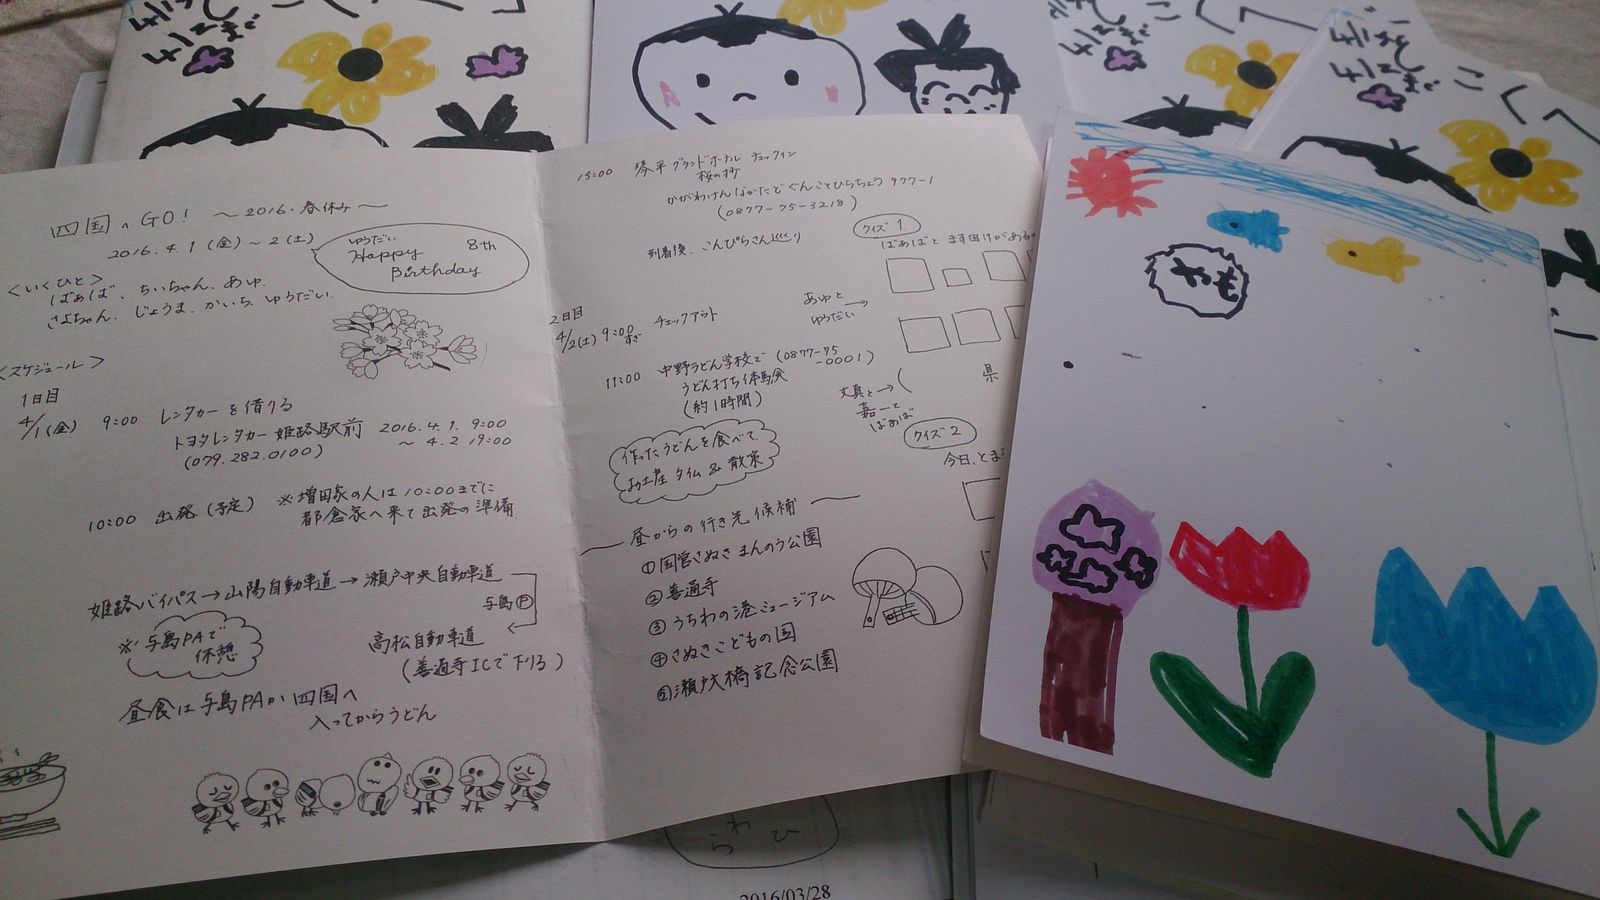 四国へGO! ～2016.春休み～
2016.4.1(金)～2(土)
ゆうだい
Happy 8th
Birthday
<いくひと>
ばぁば、ちいちゃん、あゆ、
さよちゃん、じょうま、かいち、ゆうだい
<スケジュール>
1日目
4/1(金) 9:00 レンタカーを借りる
トヨタレンタカー姫路駅前 2016.4.1. 9:00
～4.2 19:00
(079.282.0100)
10:00 出発(予定) ※増田家の人は10:00までに
都倉家へ来て出発の準備
姫路バイパス→山陽自動車道→瀬戸中央自動車道
与島Ⓟ
※与島PAで
休憩
高松自動車道
(善通寺ICで下りる)
昼食は与島PAか四国へ
入ってからうどん
15:00 琴平グランドホテル チェックイン
桜の抄
かがわけんなかたどぐんことひらちょう977-1
(0877-75-3218)
到着後、こんぴらさん
2日目
4/2(土) 9:00 チェックアウト
すぎ
11:00 中野うどん学校で (0877-75
-0001)
うどん打ち体験
(約1時間)
作ったうどんを食べて
お土産タイム&散策
昼からの行き先候補
①国営さぬきまんのう公園
②善通寺
③うちわの港ミュージアム
④さぬきこどもの国
⑤瀬戸大橋記念公園
クイズ1
ばぁばと ます田けがある
あゆと→
ゆうだい
県
丈真と→(
嘉一と
ばぁば
クイズ2
今日、とま
わ
ら
ひ
2016/03/28